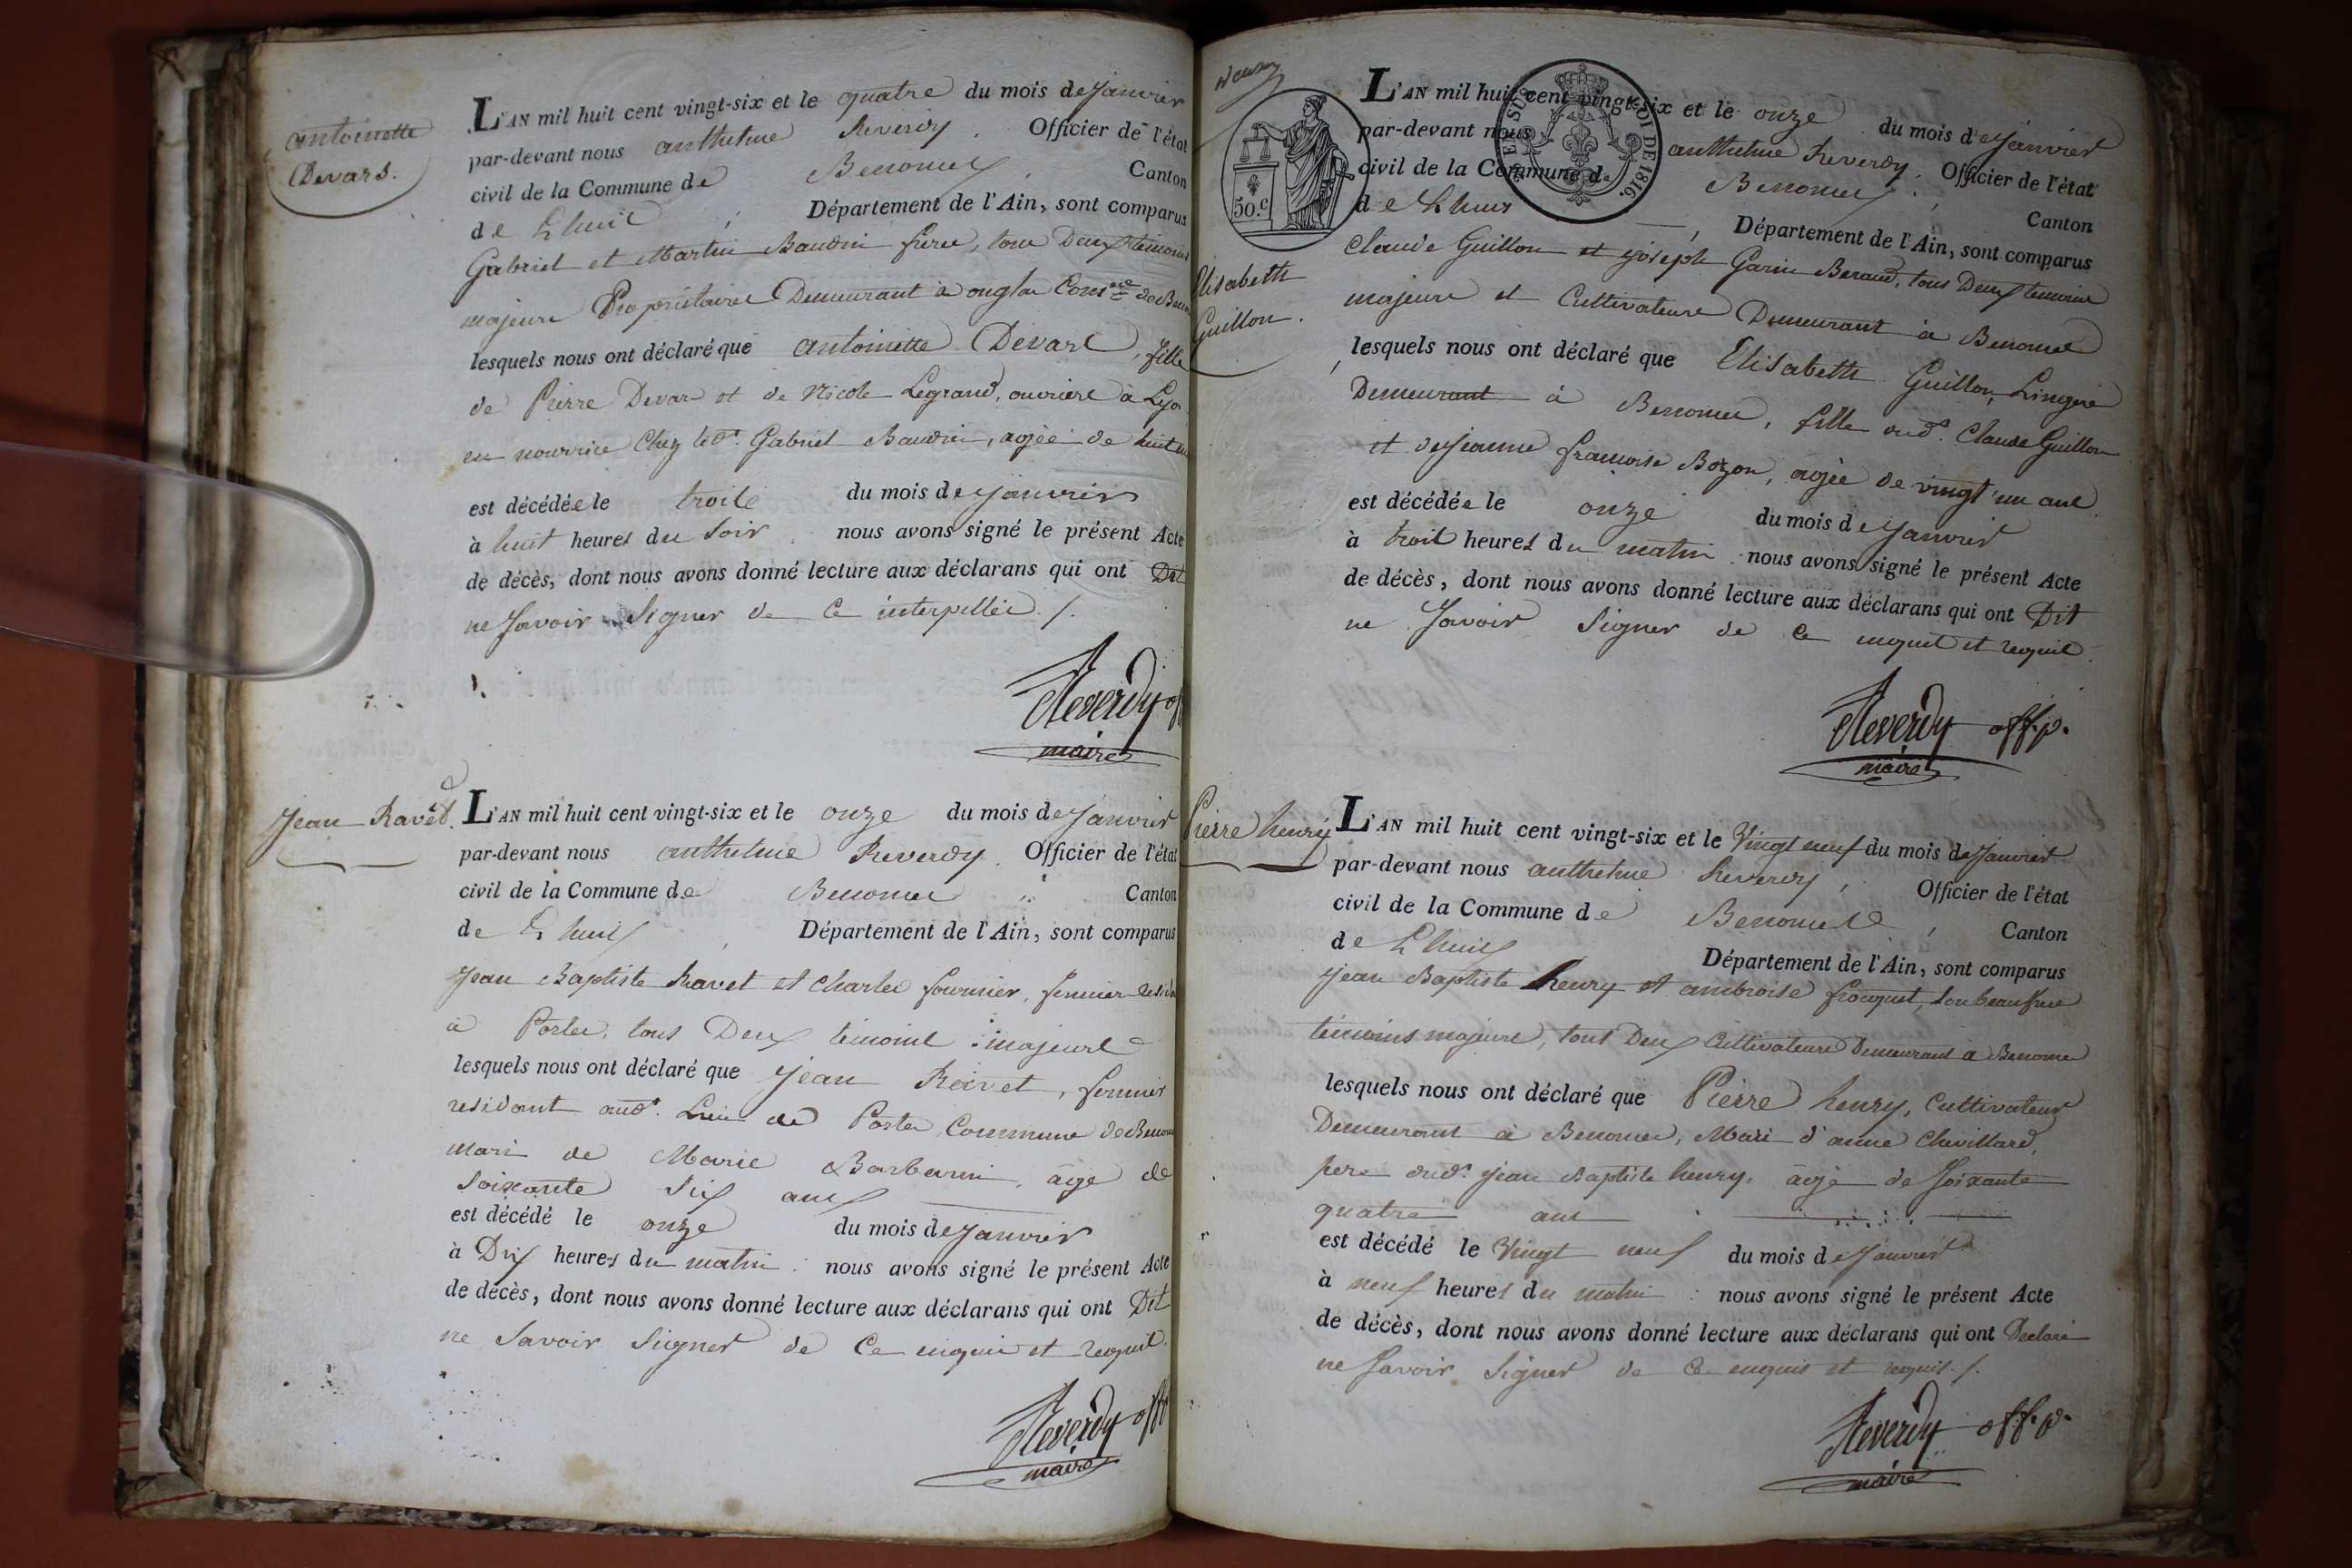 antoinette
Devars.
L'AN mil huit cent vingt-six et le quatre du mois de Janvier
par-devant nous anthelme Reverdy, Officier de l'état
civil de la Commune de Benonces, Canton
de Lhuis, Département de l'Ain, sont comparus
Gabriel et Martin Baudin frères, tous Deux témoins
majeurs Propriétaires Demeurant à onglas
lesquels nous ont déclaré que antoinette Devars, fille
de Pierre Devars et de Nicole Legrand, ouvrière à Lyon
en nourrice Chez led.t Gabriel Baudin, agée de huit
est décédée le trois du mois de janvier
à huit heures du soir. nous avons signé le présent Acte
de décès, dont nous avons donné lecture aux déclarans qui ont Dit
ne Savoir Signer de Ce interpellés /.
Reverdy off
maire
Jean Ravet.
L'AN mil huit cent vingt-six et le onze du mois de Janvier
par-devant nous anthelme Reverdy. Officier de l'état
civil de la Commune de Benonces Canton
de Lhuis, Département de l'Ain, sont comparus
Jean Baptiste Ravet et Charles fournier, fermier
à Portes, tous Deux témoins majeurs
lesquels nous ont déclaré que Jean Ravet, fermier
residant aud.t Lieu de Portes Commune de Benonces
mari de Marie Barbarin, agé de
Soixante Six ans
est décédé le onze du mois de janvier
à Dix heures du matin. nous avons signé le présent Acte
de décès, dont nous avons donné lecture aux déclarans qui ont Dit
ne Savoir Signer de Ce enquis et requis.
Reverdy off
maire
50.c
LOI DE 1816.
Elisabeth
Guillon.
L'AN mil huit cent vingt-six et le onze du mois de Janvier
par-devant nous anthelme Reverdy. Officier de l'état
civil de la Commune de Benonces, Canton
de Lhuis, Département de l'Ain, sont comparus
Claude Guillon et joseph Garin Beraud, tous Deux temoins
majeurs et Cultivateurs Demeurant à Benonces
lesquels nous ont déclaré que Elisabeth Guillon, Lingere
Demeurant à Benonces, fille dud.t Claude Guillon
et de Jeanne françoise Bozon, agée de vingt un ans
est décédée le onze du mois de Janvier
à trois heures du matin. nous avons signé le présent Acte
de décès, dont nous avons donné lecture aux déclarans qui ont Dit
ne Savoir Signer de Ce enquis et requis.
Reverdy off. p.
maire
Pierre henry
L'AN mil huit cent vingt-six et le Vingt neuf du mois de Janvier
par-devant nous anthelme Reverdy, Officier de l'état
civil de la Commune de Benonces, Canton
de Lhuis Département de l'Ain, sont comparus
Jean Baptiste henry et ambroise froquet, son beaufrere
témoins majeurs, tous Deux Cultivateurs Demeurant a Benonces
lesquels nous ont déclaré que Pierre henry, Cultivateur
Demeurant à Benonces, Mari d'anne Chevillard,
pere dud.t jean Baptiste henry, agé de Soixante
quatre ans
est décédé le Vingt neuf du mois de Janvier
à neuf heures du matin : nous avons signé le présent Acte
de décès, dont nous avons donné lecture aux déclarans qui ont Declaré
ne Savoir Signer de Ce enquis et requis /.
Reverdy off. p.
maire